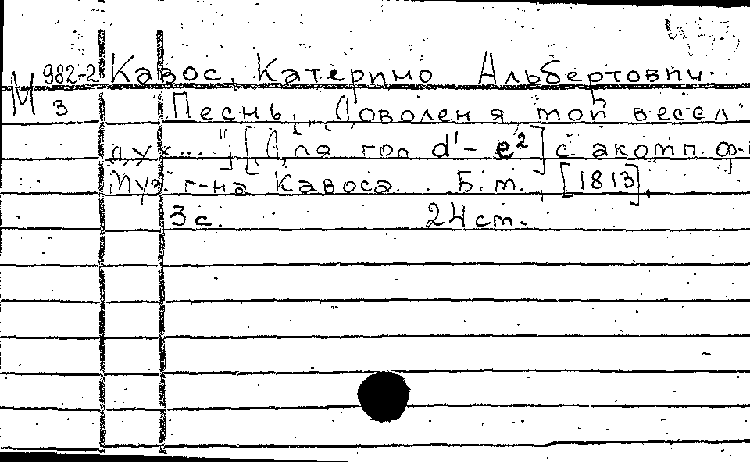 М 982-2 Кавос, Катерино Альбертович.
3 Песнь "Доволен я, мой весел
дух...". [Для гол d¹- e²] с акомп. ф-
Муз г-на Кавоса. Б.м., [1813].
3 с. 24 см.